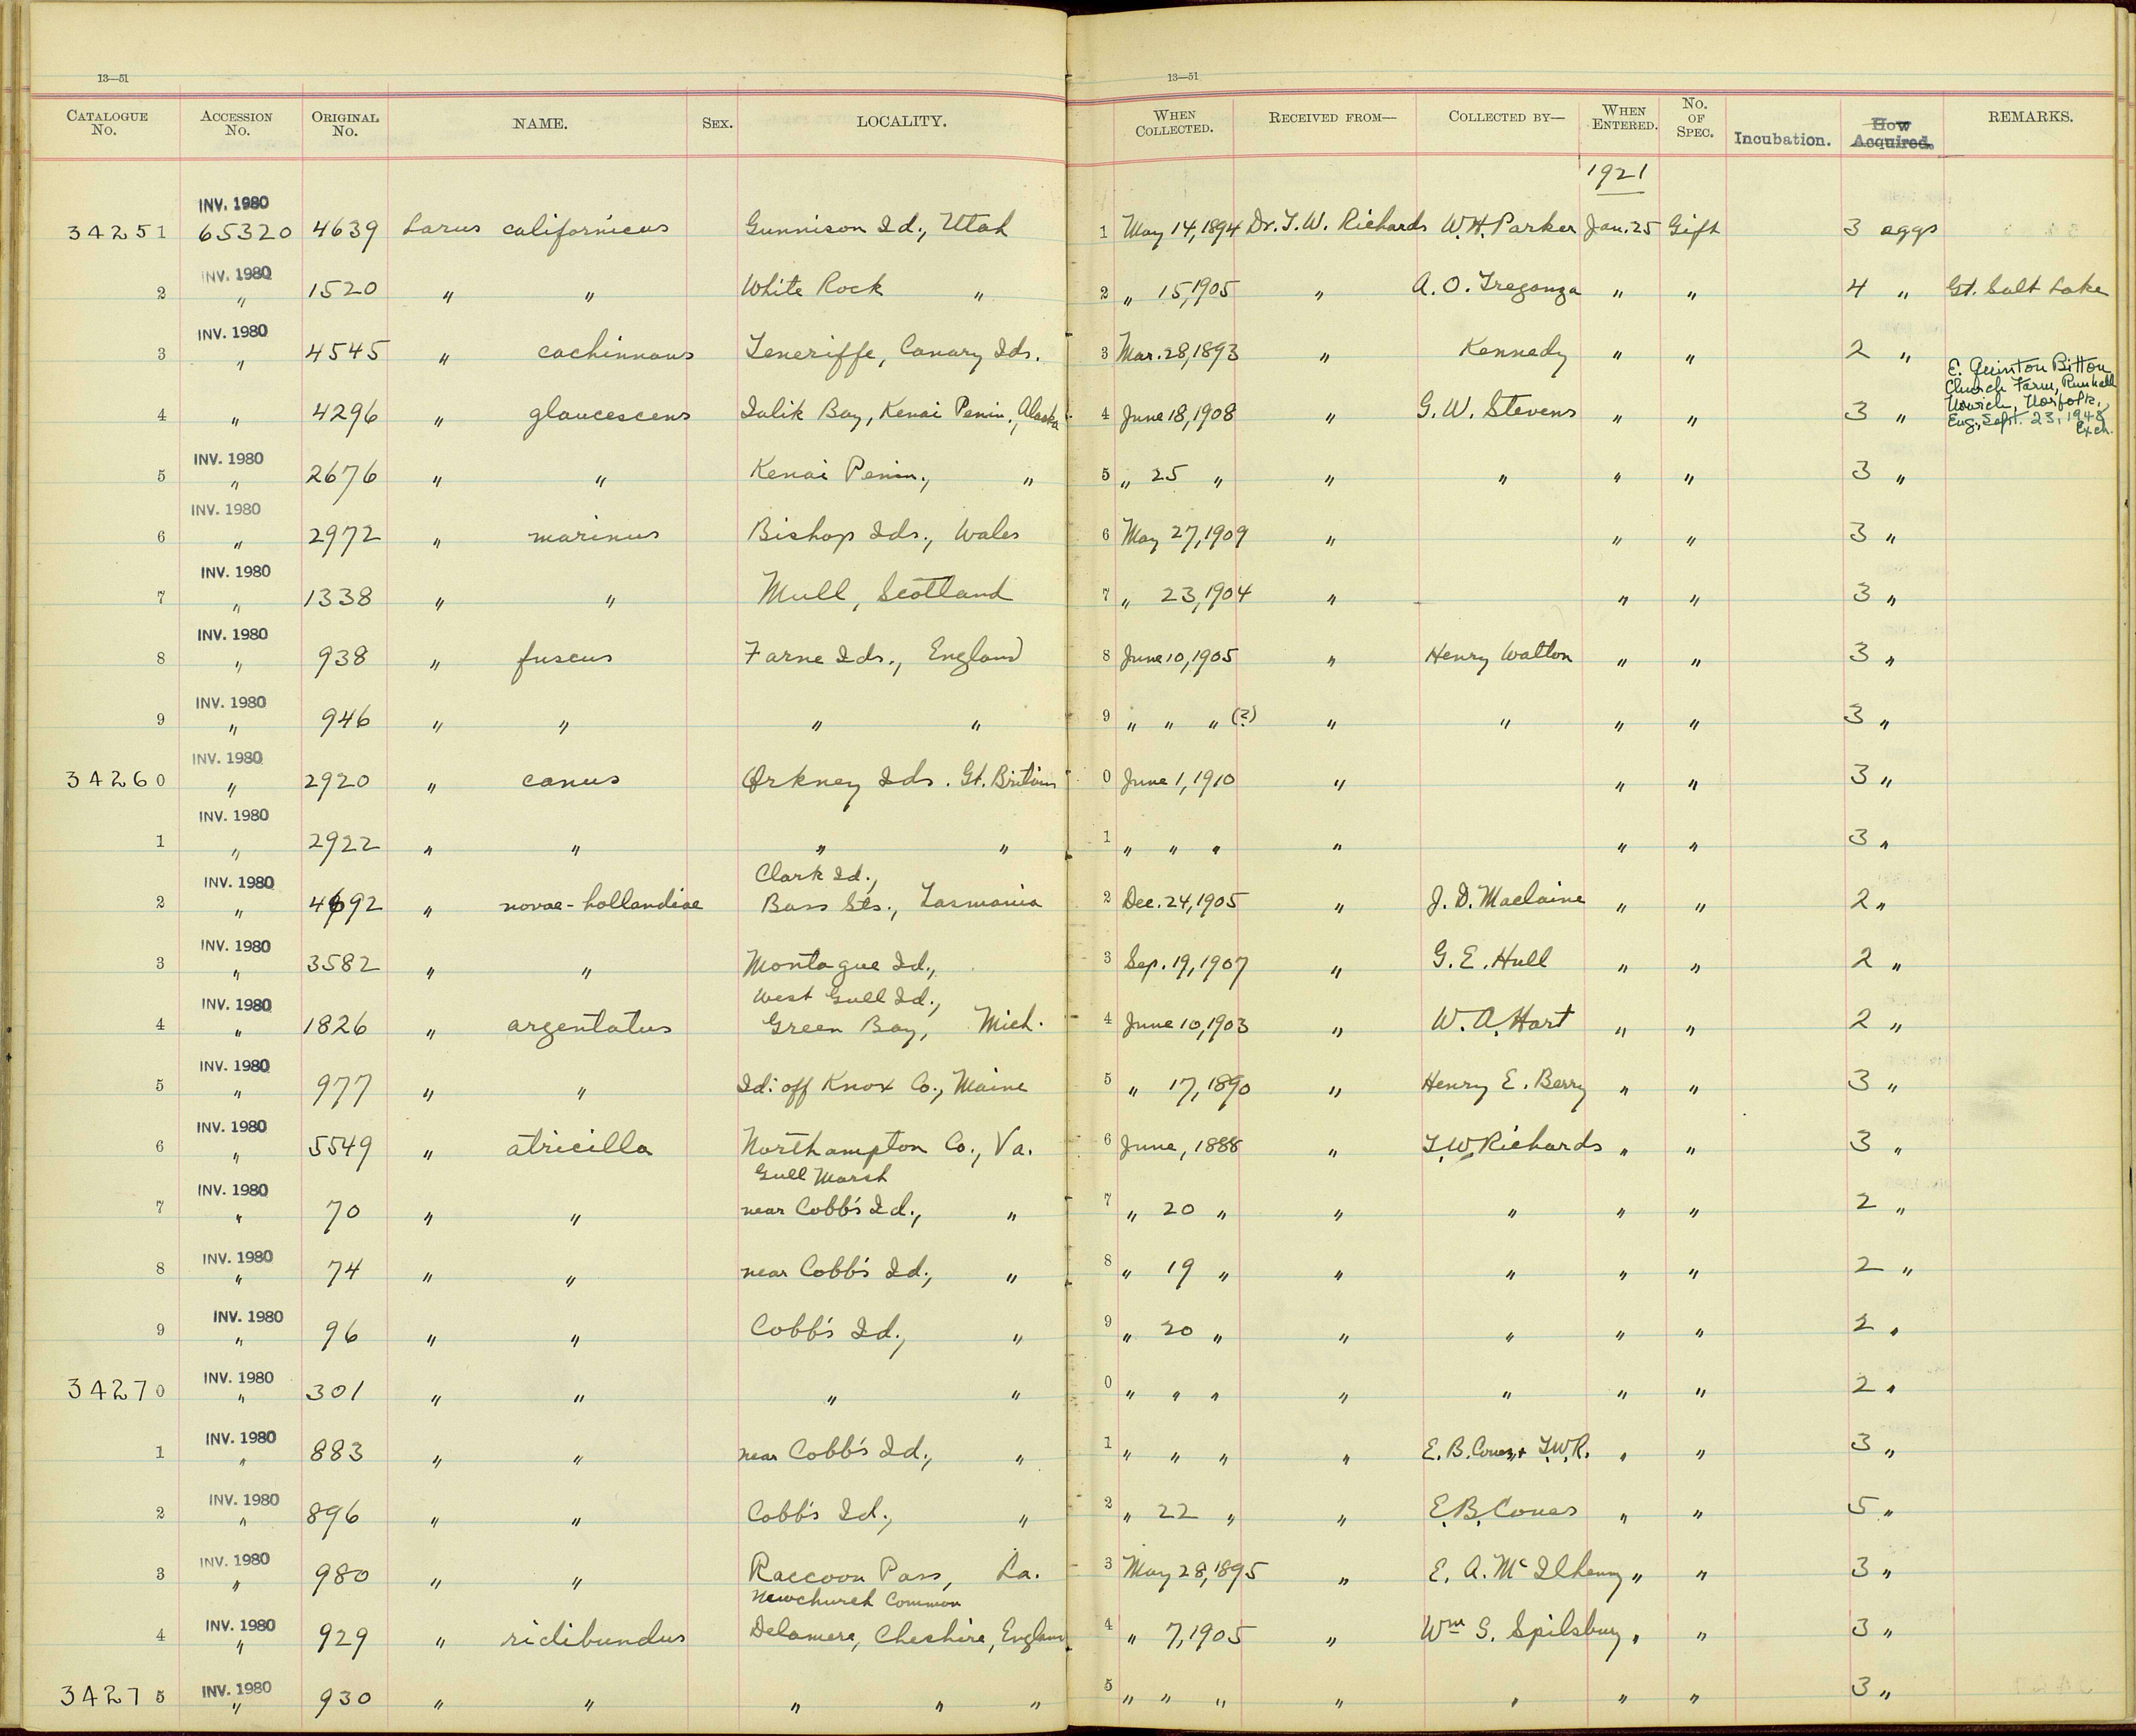 13—51
13—51
CATALOGUE No. ACCESSION No. ORIGINAL No. NAME. SEX. LOCALITY. WHEN COLLECTED. RECEIVED FROM— COLLECTED BY— WHEN ENTERED. No. OF SPEC. Incubation. How Acquired. REMARKS.
1921
INV. 1980
34251 65320 4639 Larus californicus Gunnison Id., Utah 1 May 14, 1894 Dr. T. W. Richards W. H. Parker Jan. 25 Gift 3 eggs
INV. 1980
2 " 1520 " " White Rock " 2 " 15, 1905 " A. O. Treganza " " 4 " Gt. Salt Lake
INV. 1980
3 " 4545 " cachinnans Teneriffe, Canary Ids. 3 Mar. 28, 1893 " Kennedy " " 2 "
E. Quinton Bitton
Church Farm, Runhall
Norwich, Norfolk,
Eng., Sept. 23, 1948
Exch.
4 " 4296 " glaucescens Ialik Bay, Kenai Penin., Alaska 4 June 18, 1908 " G. W. Stevens " " 3 "
INV. 1980
5 " 2676 " " Kenai Penin., " 5 " 25 " " " " " 3 "
INV. 1980
6 " 2972 " marinus Bishop Ids., Wales 6 May 27, 1909 " " " 3 "
INV. 1980
7 " 1338 " " Mull, Scotland 7 " 23, 1904 " " " 3 "
INV. 1980
8 " 938 " fuscus Farne Ids., England 8 June 10, 1905 " Henry Walton " " 3 "
INV. 1980
9 " 946 " " " " 9 " " " (?) " " " " 3 "
INV. 1980
34260 " 2920 " canus Orkney Ids. Gt. Britain 0 June 1, 1910 " " " 3 "
INV. 1980
1 " 2922 " " " " 1 " " " " " " 3 "
Clark Id.,
INV. 1980
2 " 4692 " novae-hollandiae Bass Sts., Tasmania 2 Dec. 24, 1905 " J. D. Maclaine " " 2 "
INV. 1980
3 " 3582 " " Montague Id., 3 Sep. 19, 1907 " G. E. Hull " " 2 "
West Gull Id.,
INV. 1980
4 " 1826 " argentatus Green Bay, Mich. 4 June 10, 1903 " W. A. Hart " " 2 "
INV. 1980
5 " 977 " " Id. off Knox Co., Maine 5 " 17, 1890 " Henry E. Berry " " 3 "
INV. 1980
6 " 5549 " atricilla Northampton Co., Va. 6 June, 1888 " T. W. Richards " " 3 "
Gull Marsh
INV. 1980
7 " 70 " " near Cobb's Id., " 7 " 20 " " " " " 2 "
INV. 1980
8 " 74 " " near Cobb's Id., " 8 " 19 " " " " " 2 "
INV. 1980
9 " 96 " " Cobb's Id., " 9 " 20 " " " " " 2 "
INV. 1980
34270 " 301 " " " " 0 " " " " " " " 2 "
INV. 1980
1 " 883 " " near Cobb's Id., " 1 " " " " E. B. Coues + T. W. R. " " 3 "
INV. 1980
2 " 896 " " Cobb's Id., " 2 " 22 " " E. B. Coues " " 5 "
INV. 1980
3 " 980 " " Raccoon Pass, La. 3 May 28, 1895 " E. A. McIlhenny " " 3 "
Newchurch Common
INV. 1980
4 " 929 " ridibundus Delamere, Cheshire, England 4 " 7, 1905 " Wm S. Spilsbury " " 3 "
INV. 1980
34275 " 930 " " " " " 5 " " " " " " " 3 "